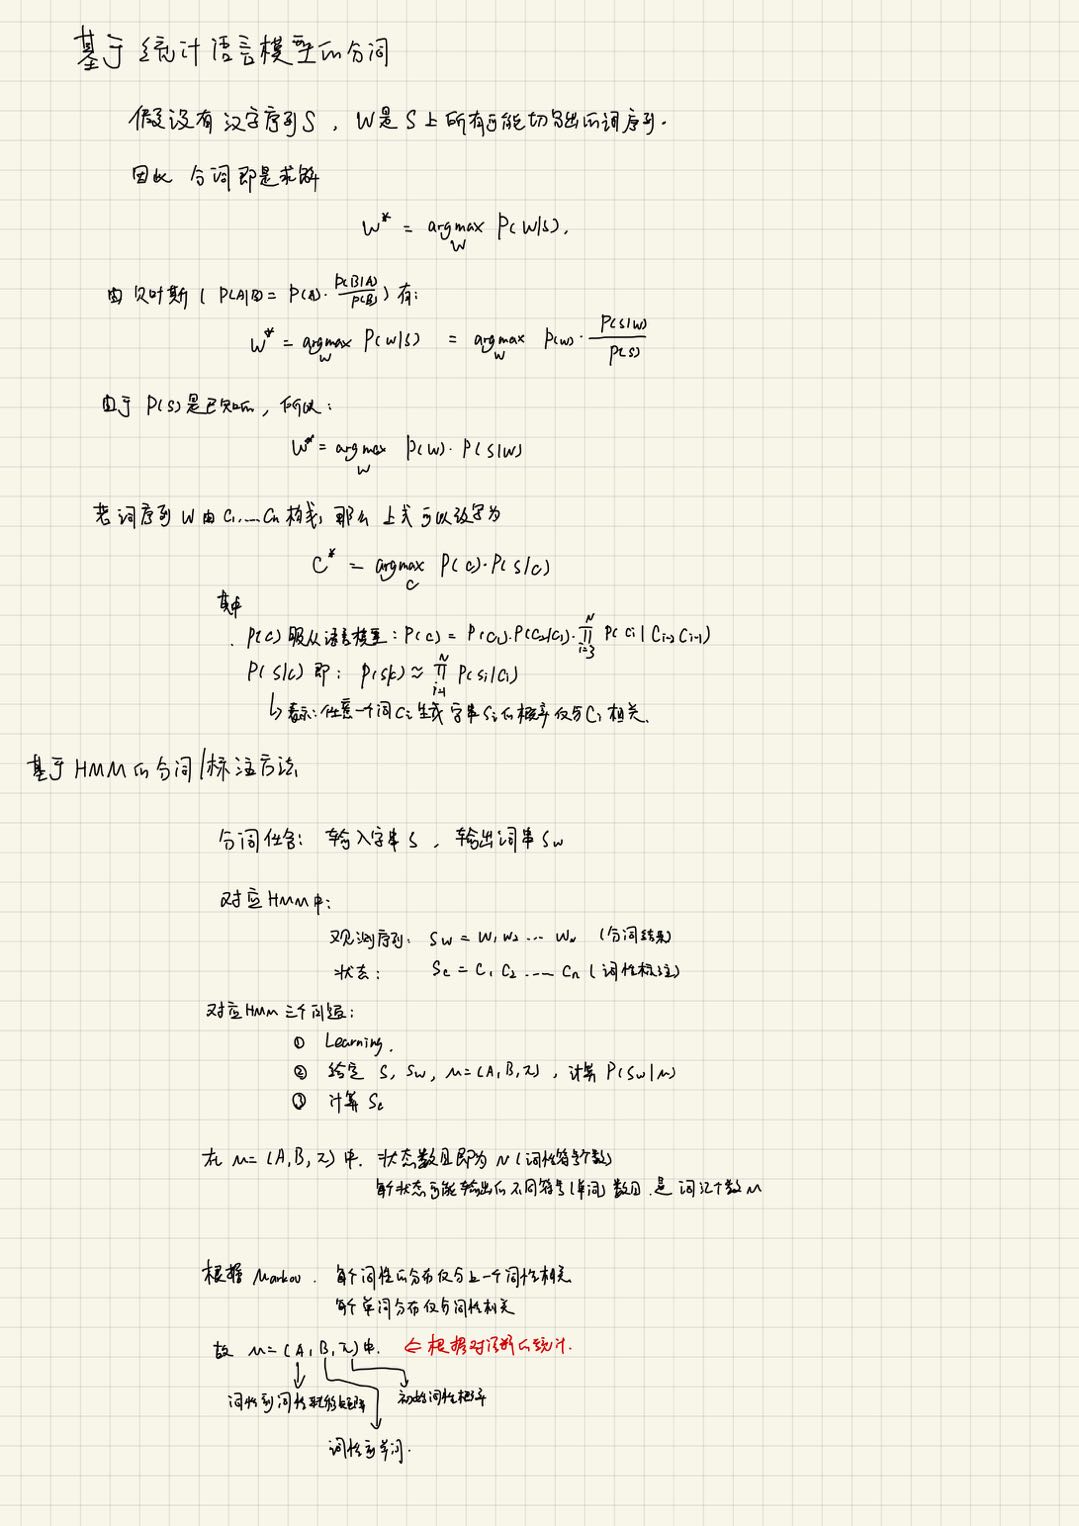 基于统计语言模型的分词
假设有汉字序列S，W是S上所有可能切分出的词序列.
因此 分词即是求解
W* = argmax_W P(W|S).
由贝叶斯 ( P(A|B) = P(A)· P(B|A)/P(B) ) 有:
W* = argmax_W P(W|S) = argmax_W P(W)· P(S|W)/P(S)
由于 P(S)是已知的，所以:
W* = argmax_W P(W)· P(S|W)
若词序列 W 由 C₁....Cn 构成, 那么 上式可以改写为
C* = argmax_C P(C)·P(S|C)
其中
. P(C) 服从语言模型: P(C) = P(C₁)·P(C₂|C₁)·∏_{i=3}^N P(Ci|Ci-2 Ci-1)
P(S|C) 即: P(S|C) ≈ ∏_{i=1}^N P(Si|Ci)
↳ 表示: 任意一个词Ci生成字串Si的概率仅与Ci相关.
基于HMM的分词/标注方法
分词任务: 输入字串S , 输出词串Sw
对应HMM中:
观测序列: Sw = W₁ W₂ ... Wn (分词结果)
状态: Sc = C₁ C₂ .... Cn (词性标注)
对应HMM三个问题:
① Learning.
② 给定 S, Sw, μ=(A,B,π) , 计算 P(Sw|μ)
③ 计算 Sc
在 μ=(A,B,π) 中. 状态数目即为N(词性符号个数)
每个状态可能输出的不同符号(单词)数目.是 词汇个数M
根据 Markov . 每个词性的分布仅与上一个词性相关.
每个单词分布仅与词性相关
故 μ=(A,B,π)中. ⇐根据对语料的统计.
词性到词性转移矩阵 初始词性概率
词性到单词.